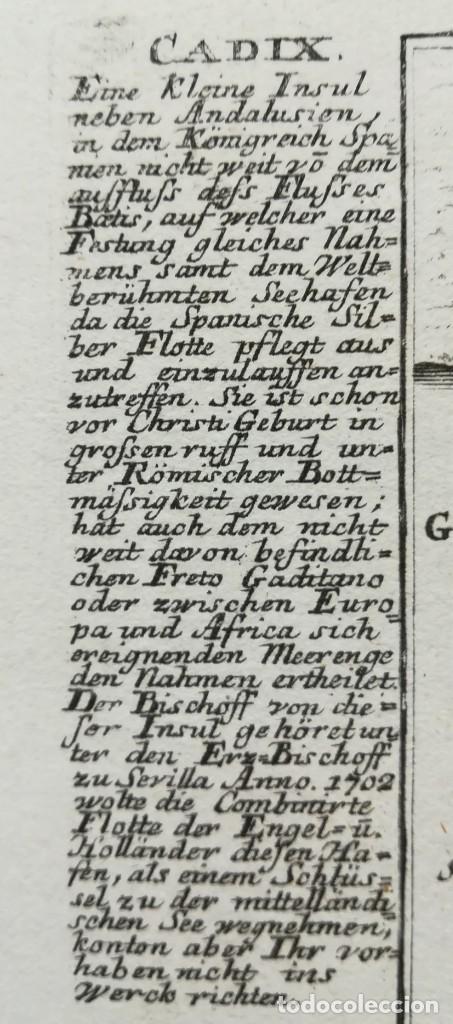 CADIX.
Eine Kleine Insul
neben Andalusien,
in dem Königreich Spa=
nien nicht weit vō dem
ausfluss dess Flusses
Bætis, auf welcher eine
Festung gleiches Nah=
mens samt dem Welt=
berühmten Seehafen
da die Spanische Sil=
ber Flotte pflegt aus
und einzulauffen an=
zutreffen. Sie ist schon
vor Christi Geburt in
grossen ruff und un=
ter Römischer Bott=
mässigkeit gewesen;
hat auch dem nicht
weit davon befindli=
chen Freto Gaditano
oder zwischen Euro=
pa und Africa sich
ereignenden Meerenge
den Nahmen ertheilet.
Der Bischoff von die=
ser Insul gehöret un
ter den Erz=Bischoff
zu Sevilla Anno. 1702
wolte die Combinirte
Flotte der Engel= ū.
Holländer diesen Ha=
fen, als einem Schlüs=
sel zu der mittelländi
schen See wegnehmen,
konton aber Ihr vor=
haben nicht ins
Werck richten.
G
todocoleccion